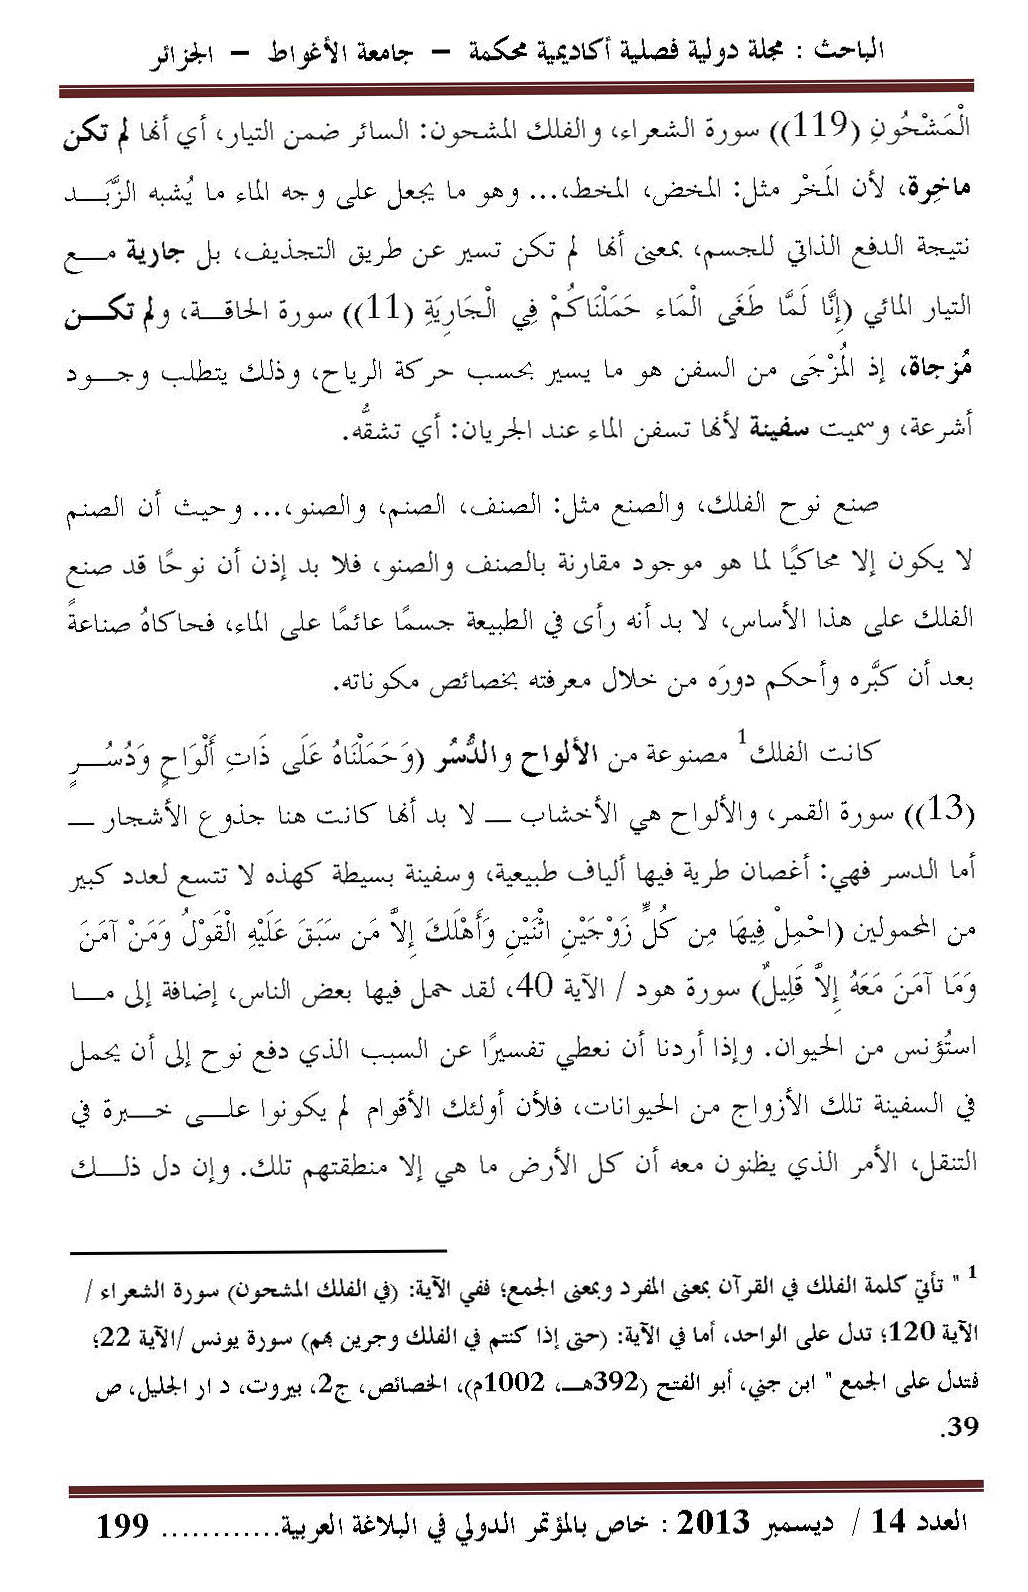 الباحث : مجلة دولية فصلية أكاديمية محكمة – جامعة الأغواط – الجزائر
الْمَشْحُونِ (119)) سورة الشعراء، والفلك المشحون: السائر ضمن التيار، أي أنها لم تكن
ماخِرة، لأن المَخْر مثل: المخض، المخط،... وهو ما يجعل على وجه الماء ما يُشبه الزَّبَـــد
نتيجة الدفع الذاتي للجسم، بمعنى أنها لم تكن تسير عن طريق التجذيف، بل جارية مـــع
التيار المائي (إِنَّا لَمَّا طَغَى الْمَاء حَمَلْنَاكُمْ فِي الْجَارِيَةِ (11)) سورة الحاقـــة، ولم تكـــن
مُزجاة، إذ المُزْجَى من السفن هو ما يسير بحسب حركة الرياح، وذلك يتطلب وجـــود
أشرعة، وسميت سفينة لأنها تسفن الماء عند الجريان: أي تشقُّه.
صنع نوح الفلك، والصنع مثل: الصنف، الصنم، والصنو،... وحيث أن الصنم
لا يكون إلا محاكيًا لما هو موجود مقارنة بالصنف والصنو، فلا بد إذن أن نوحًا قد صنع
الفلك على هذا الأساس، لا بد أنه رأى في الطبيعة جسمًا عائمًا على الماء، فحاكاهُ صناعةً
بعد أن كبَّره وأحكم دورَه من خلال معرفته بخصائص مكوناته.
كانت الفلك1 مصنوعة من الألواح والدُّسُر (وَحَمَلْنَاهُ عَلَى ذَاتِ أَلْوَاحٍ وَدُسُـــرٍ
(13)) سورة القمر، والألواح هي الأخشاب ـــ لا بد أنها كانت هنا جذوع الأشجار ـــ
أما الدسر فهي: أغصان طرية فيها ألياف طبيعية، وسفينة بسيطة كهذه لا تتسع لعدد كبير
من المحمولين (احْمِلْ فِيهَا مِن كُلٍّ زَوْجَيْنِ اثْنَيْنِ وَأَهْلَكَ إِلاَّ مَن سَبَقَ عَلَيْهِ الْقَوْلُ وَمَنْ آمَنَ
وَمَا آمَنَ مَعَهُ إِلاَّ قَلِيلٌ) سورة هود / الآية 40، لقد حمل فيها بعض الناس، إضافة إلى مـــا
استُؤنس من الحيوان. وإذا أردنا أن نعطي تفسيرًا عن السبب الذي دفع نوح إلى أن يحمل
في السفينة تلك الأزواج من الحيوانات، فلأن أولئك الأقوام لم يكونوا علـــى خـــبرة في
التنقل، الأمر الذي يظنون معه أن كل الأرض ما هي إلا منطقتهم تلك. وإن دل ذلـــك
1 " تأتي كلمة الفلك في القرآن بمعنى المفرد وبمعنى الجمع؛ ففي الآية: (في الفلك المشحون) سورة الشعراء /
الآية 120؛ تدل على الواحد، أما في الآية: (حتى إذا كنتم في الفلك وجرين بهم) سورة يونس /الآية 22؛
فتدل على الجمع " ابن جني، أبو الفتح (392هـــ، 1002م)، الخصائص، ج2، بيروت، د ار الجليل، ص
39.
العدد 14 / ديسمبر 2013 : خاص بالمؤتمر الدولي في البلاغة العربية............. 199